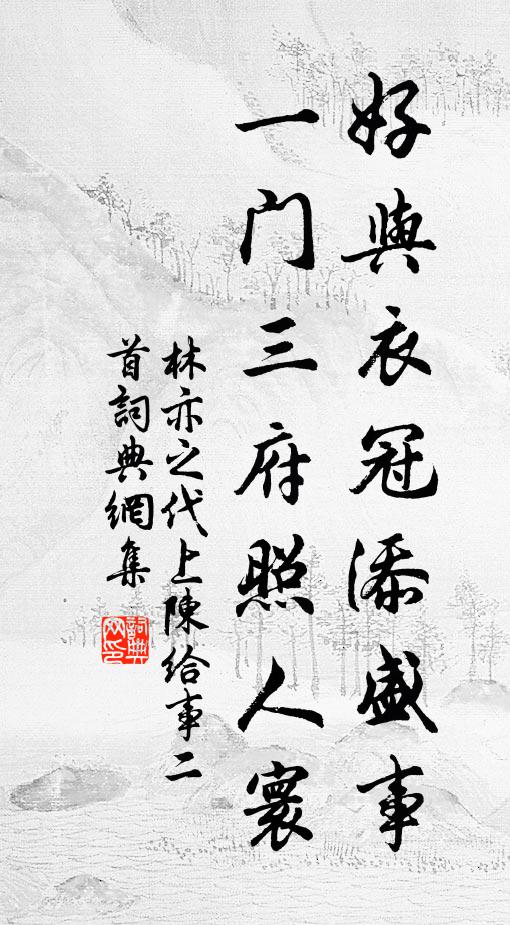 好與衣冠添盛事
一门三府照人寰
林亦之代上陳给事二
首詞典網集
詞典网印